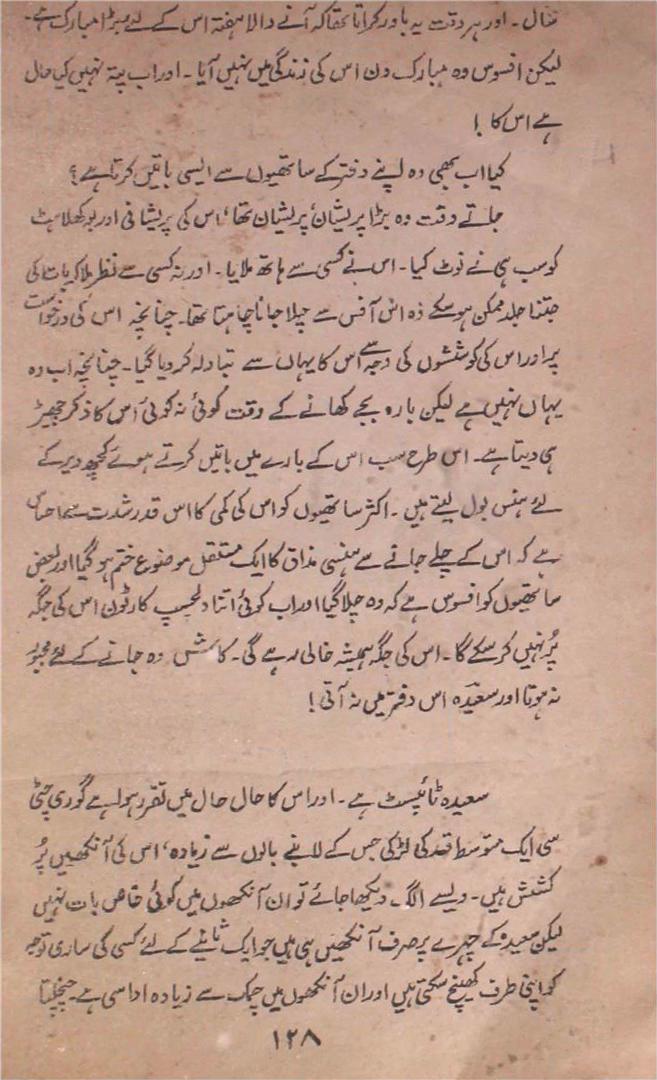 تھال۔ اور ہر وقت یہ باور کراتا تھا کہ آنے والا ہفتہ اس کے لئے بڑا مبارک ہے۔
لیکن افسوس وہ مبارک دن اس کی زندگی میں نہیں آیا۔ اور اب پتہ نہیں کیا حال
ہے اس کا !
کیا اب بھی وہ اپنے دفتر کے ساتھیوں سے ایسی باتیں کرتا ہے؟
جاتے وقت وہ بڑا پریشان پریشان تھا، اس کی پریشانی اور بوکھلاہٹ
کو سب ہی نے نوٹ کیا۔ اس نے کسی سے ہاتھ ملایا۔ اور نہ کسی سے نظر ملا کر بات کی
جتنا جلد ممکن ہو سکے وہ اس آفس سے چلا جانا چاہتا تھا۔ چنانچہ اس کی درخواست
پر اور اس کی کوششوں کی وجہ سے اس کا یہاں سے تبادلہ کر دیا گیا۔ چنانچہ اب وہ
یہاں نہیں ہے لیکن بارہ بجے کھانے کے وقت کوئی نہ کوئی اس کا ذکر چھیڑ
ہی دیتا ہے۔ اس طرح سب اس کے بارے میں باتیں کرتے ہوئے کچھ دیر کے
لئے ہنس بول لیتے ہیں۔ اکثر ساتھیوں کو اس کی کمی کا اس قدر شدت سے احساس
ہے کہ اس کے چلے جانے سے ہنسی مذاق کا ایک مستقل موضوع ختم ہو گیا اور بعض
ساتھیوں کو افسوس ہے کہ وہ چلا گیا اور اب کوئی اتنا دلچسپ کارٹون اس کی جگہ
پُر نہیں کر سکے گا۔ اس کی جگہ ہمیشہ خالی رہے گی۔ کاش وہ جانے کے لئے مجبور
نہ ہوتا اور سعیدہ اس دفتر میں نہ آتی !
سعیدہ ٹائپسٹ ہے۔ اور اس کا حال حال میں تقرر ہوا ہے گوری چٹی
سی ایک متوسط قد کی لڑکی جس کے لانبے بالوں سے زیادہ، اس کی آنکھیں پُر
کشش ہیں۔ ویسے الگ۔ دیکھا جائے تو ان آنکھوں میں کوئی خاص بات نہیں
لیکن سعیدہ کے چہرے پر صرف آنکھیں ہی ہیں جو ایک ثانیے کے لئے کسی کی ساری توجہ
کو اپنی طرف کھینچ سکتی ہیں اور ان آنکھوں میں چمک سے زیادہ اداسی ہے۔ چنچلتا
۱۲۸